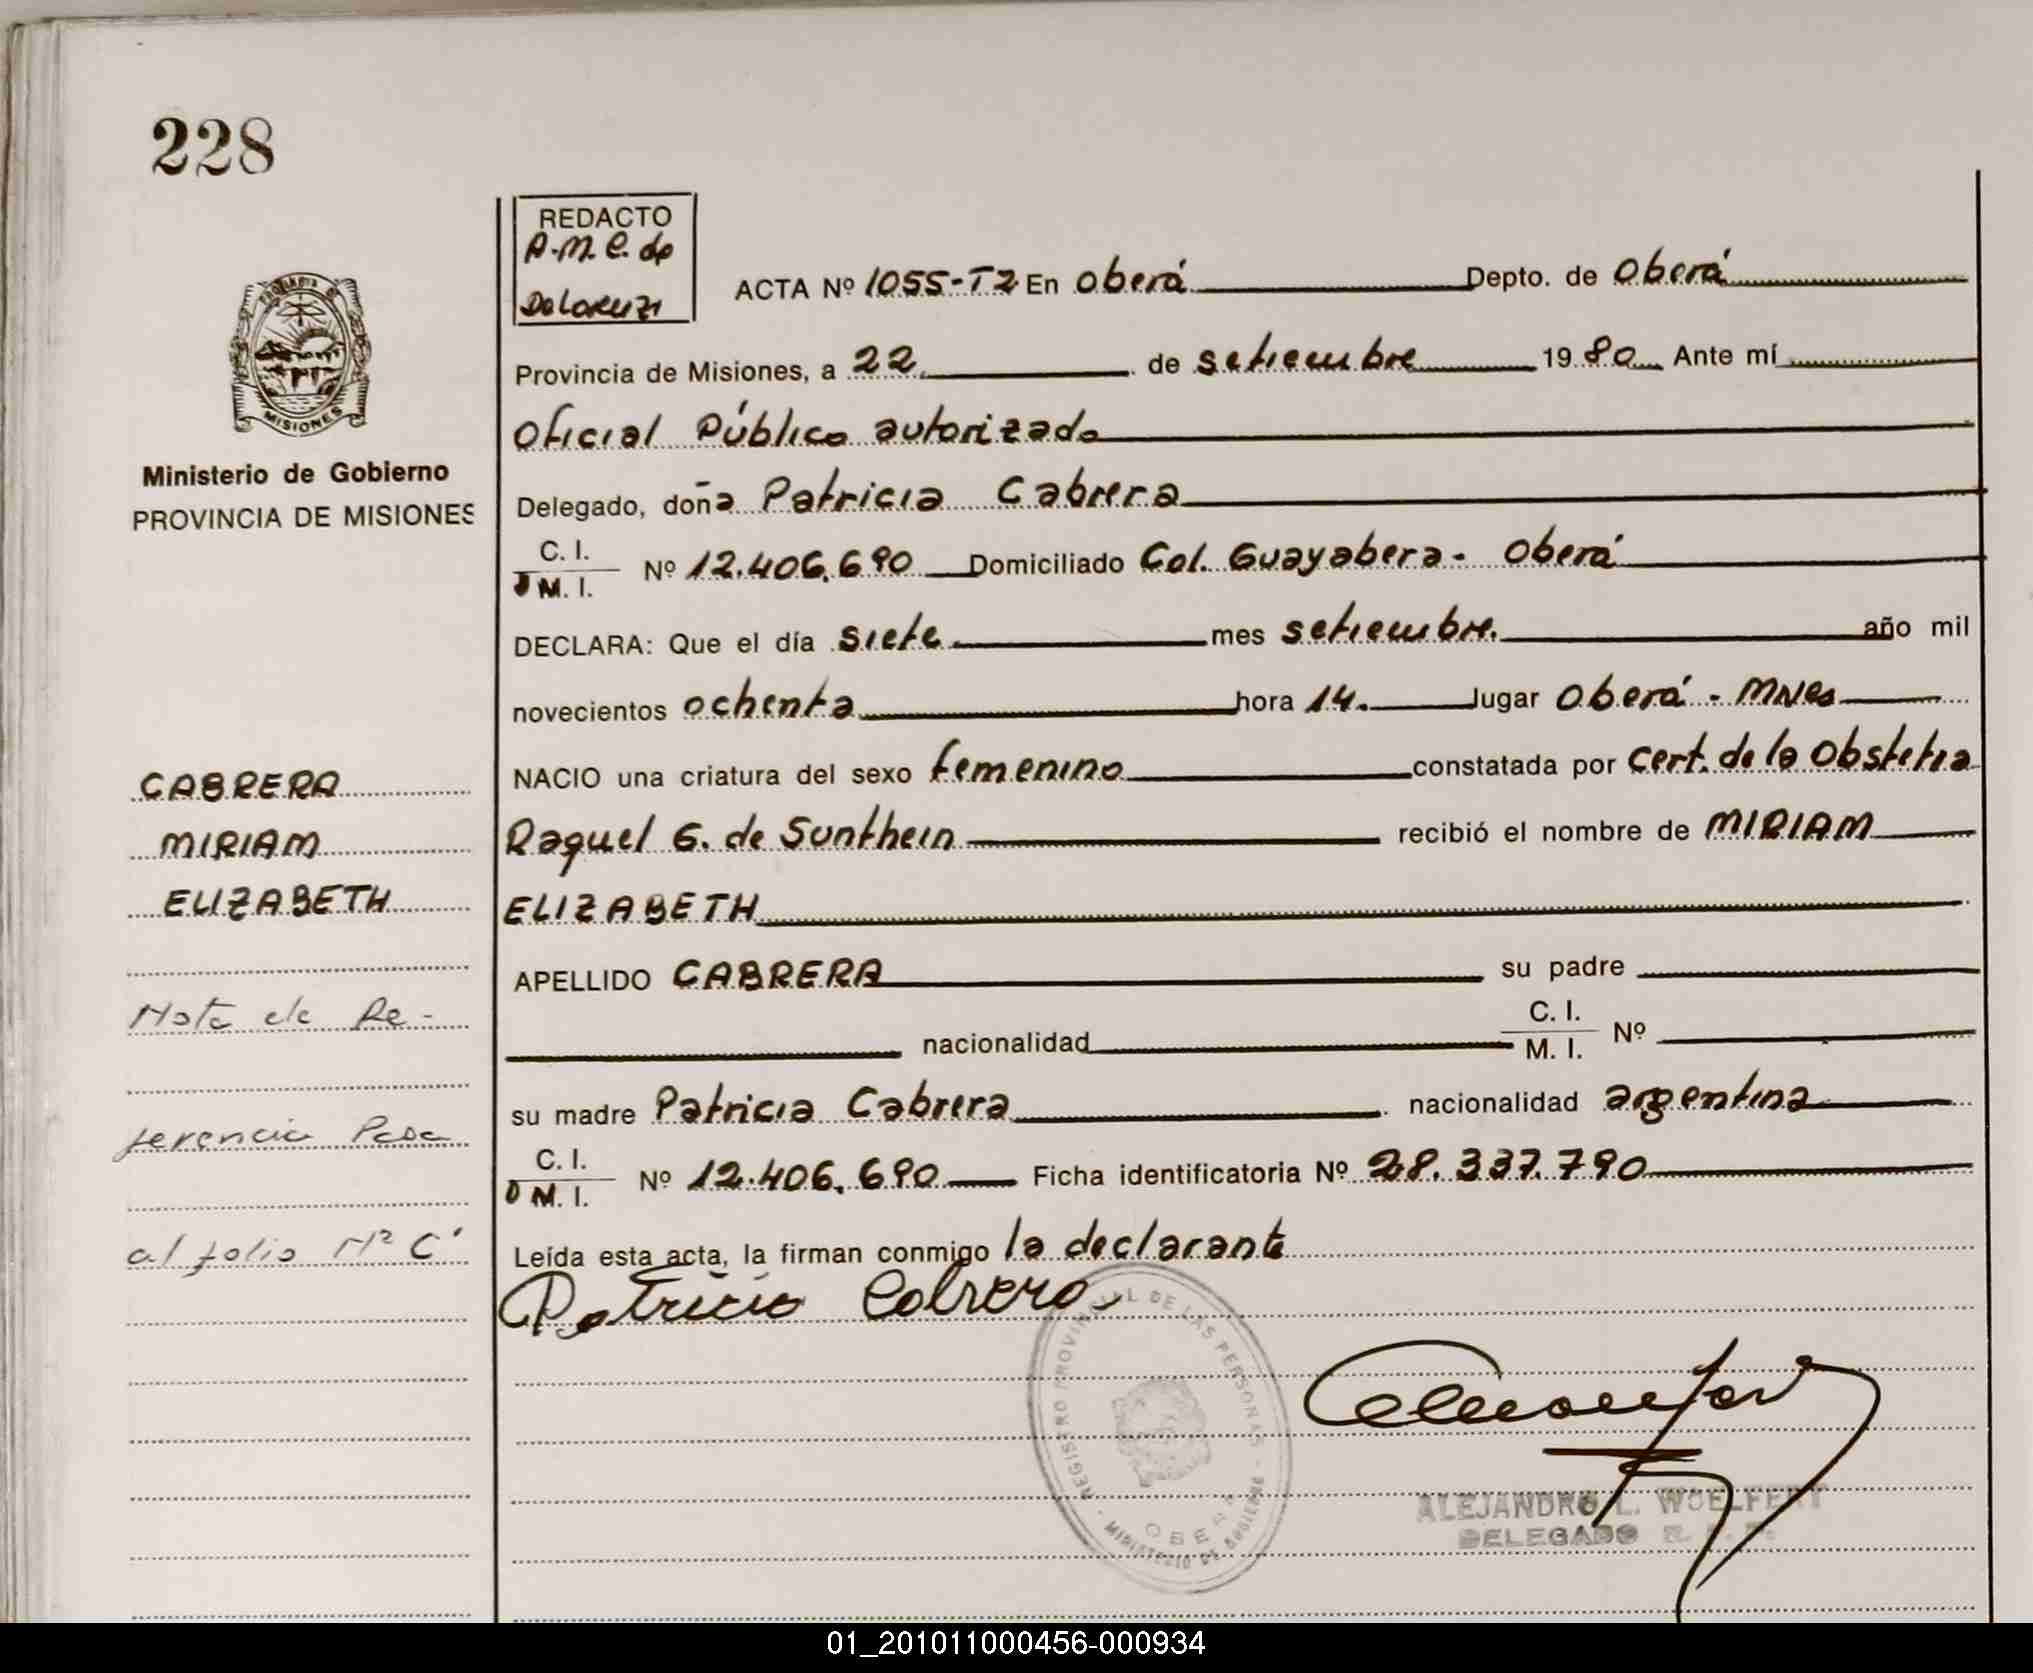 228
REDACTO
A.M.C. de
De Lorenzi
ACTA Nº 1055-T2 En Oberá Depto. de Oberá
Provincia de Misiones, a 22 de setiembre 1980 Ante mí
Oficial Público autorizado
Delegado, doña Patricia Cabrera
C. I.
M. I. Nº 12.406.690 Domiciliado Col. Guayabera - Oberá
DECLARA: Que el día siete mes setiembre. año mil
novecientos ochenta hora 14. lugar Oberá - MNes
NACIO una criatura del sexo femenino constatada por Cert. de la Obstetra
Raquel G. de Sunthein recibió el nombre de MIRIAM
ELIZABETH
APELLIDO CABRERA su padre
nacionalidad C. I.
M. I. Nº
su madre Patricia Cabrera nacionalidad argentina
C. I.
M. I. Nº 12.406.690 Ficha identificatoria Nº 28.337.790
Leída esta acta, la firman conmigo la declarante
Patricia Cabrera
REGISTRO PROVINCIAL DE LAS PERSONAS - MINISTERIO DE GOBIERNO
OBERA
ALEJANDRO L. WOELFERT
DELEGADO
PROVINCIA DE
MISIONES
Ministerio de Gobierno
PROVINCIA DE MISIONES
CABRERA
MIRIAM
ELIZABETH
Nota de Re-
ferencia Pasa
al folio Nº C'
01_201011000456-000934